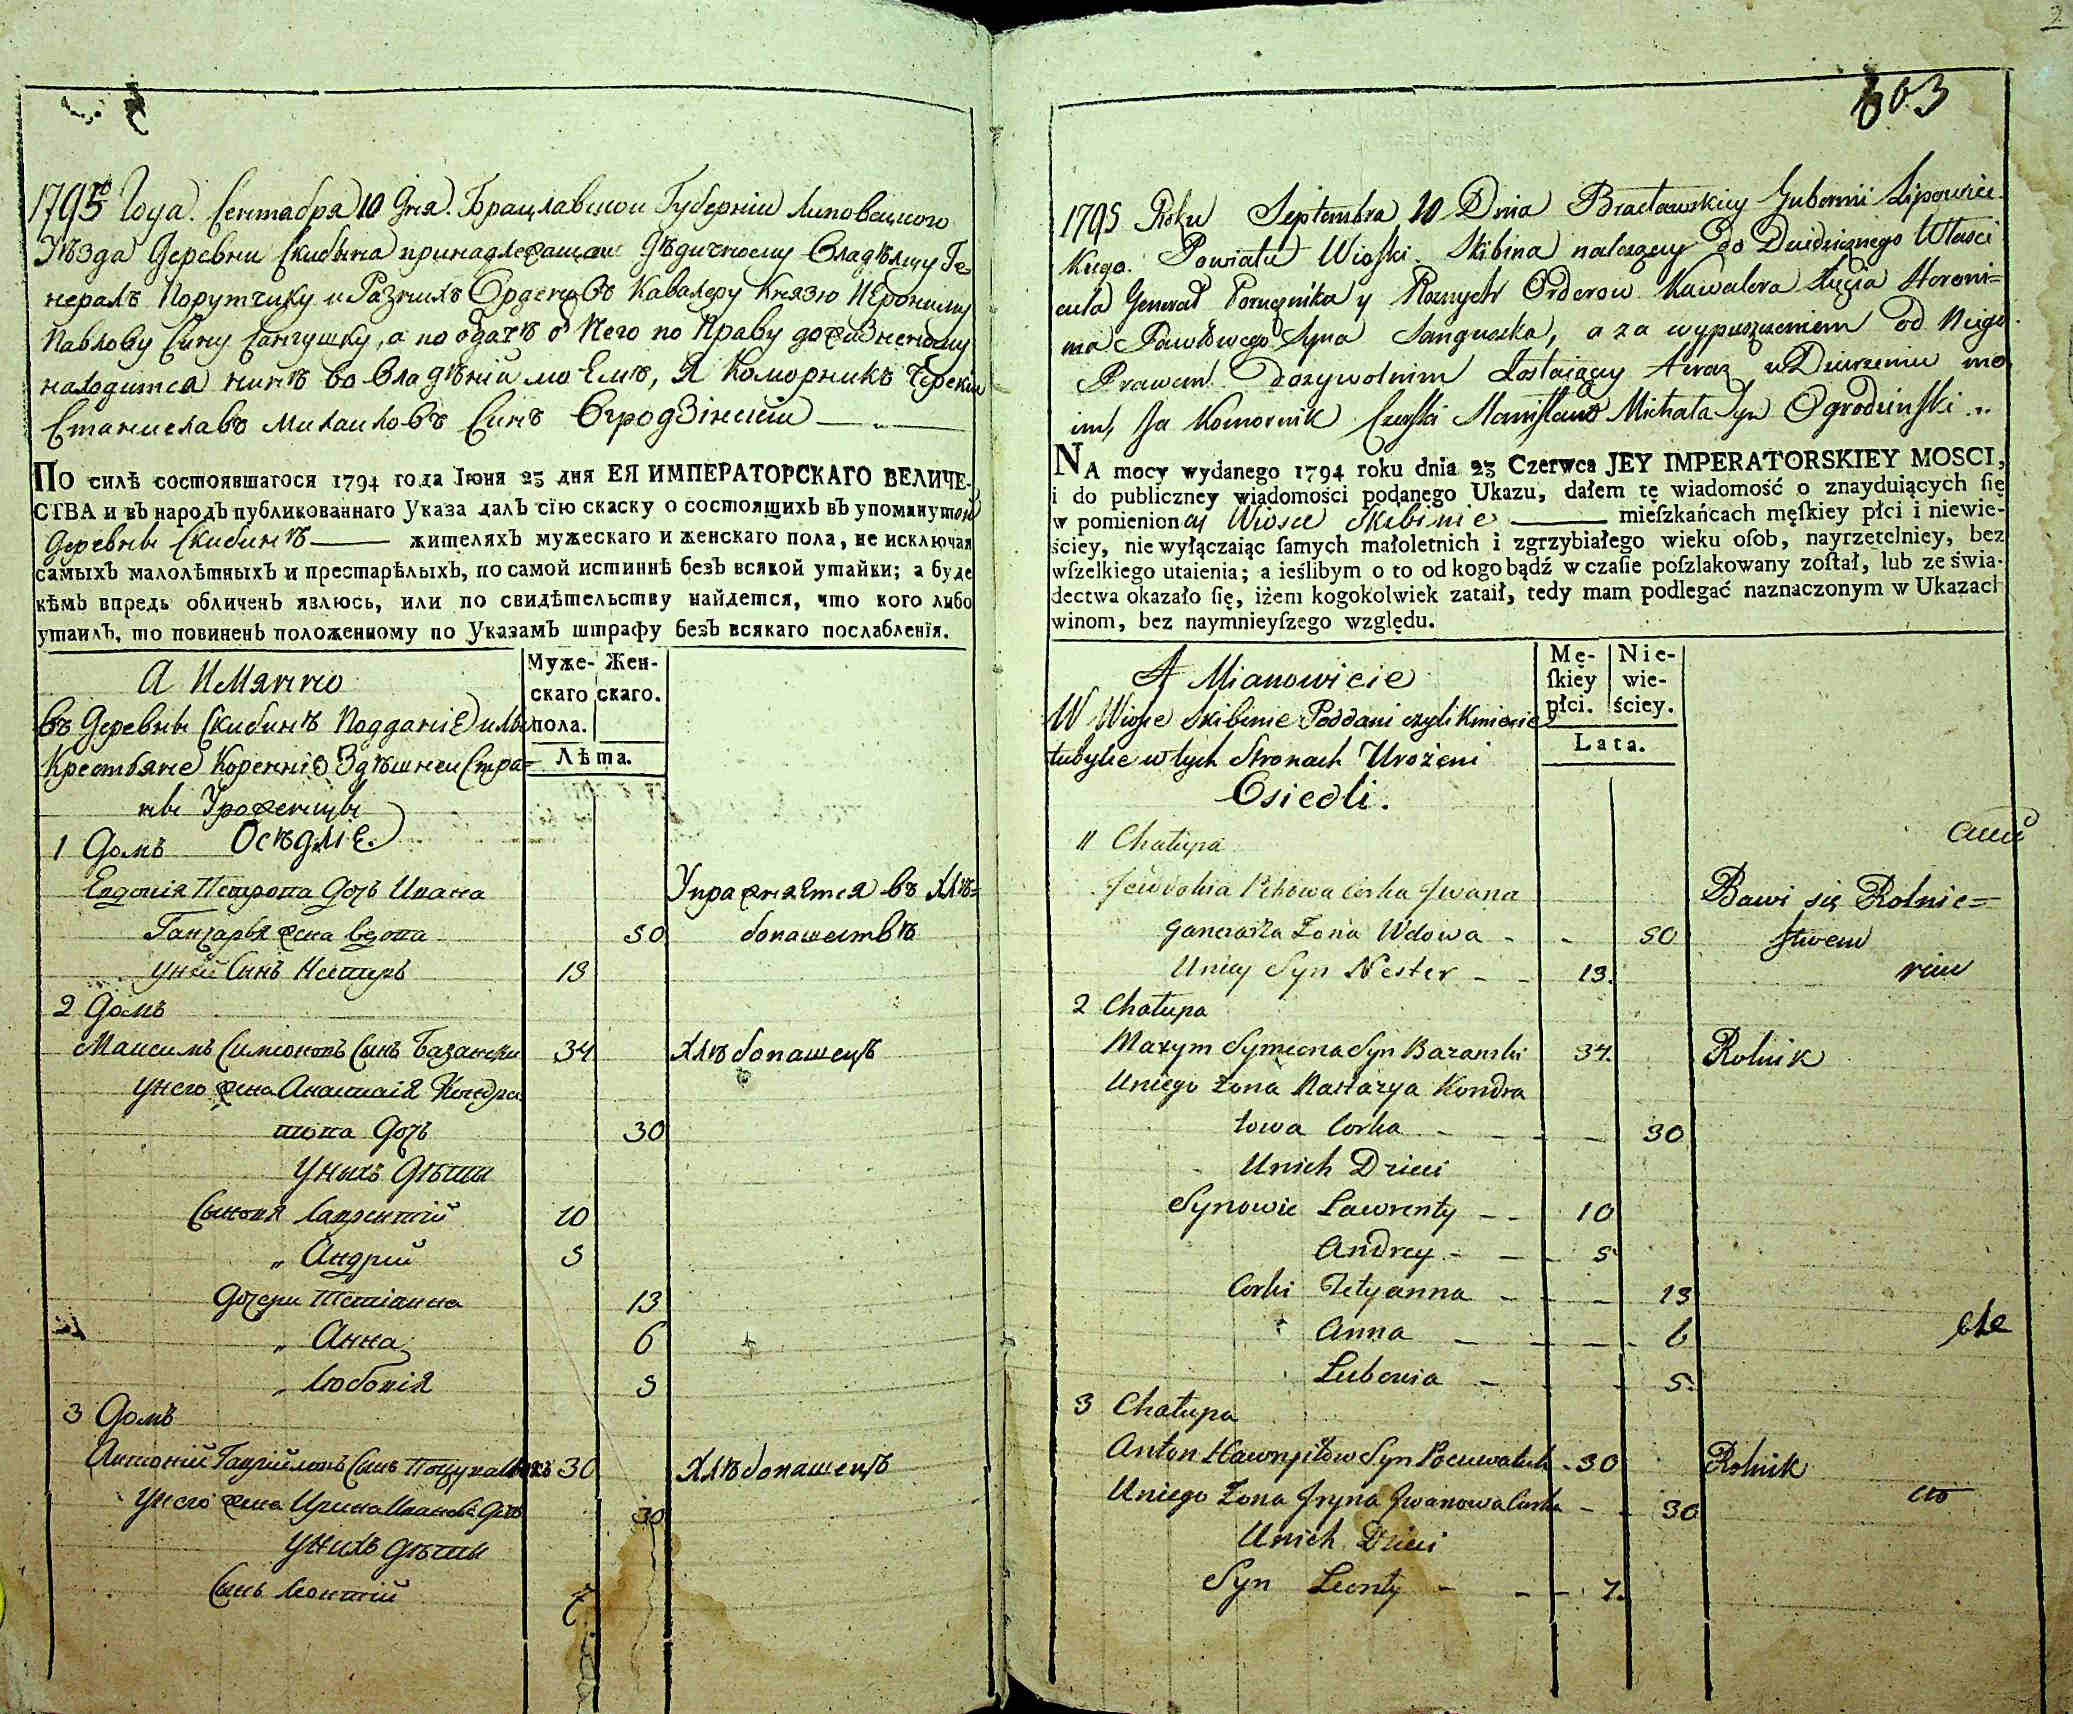 1795го Года Сентября 10 Дня. Брацлавской Губерніи Липовецкого
Уѣзда Деревни Скибына принадлежащои Дѣдичному Владѣлцу Ге-
нералъ Порутчику и Разнихъ Орденовъ Кавалеру Князю Іерониму
Павлову Сину Сангушку, а по одачѣ о Него по Праву дожизненому
находится нинѣ во владѣніи моемъ, Я Коморникъ Черскій
Станиславъ Михаиловъ Синъ Огродзінскій
По силѣ состоявшагося 1794 года Іюня 23 дня ЕЯ ИМПЕРАТОРСКАГО ВЕЛИЧЕ-
СТВА и въ народъ публикованнаго Указа далъ сію скаску о состоящихъ въ упомянутой
Деревнѣ Скибинѣ —— жителяхъ мужескаго и женскаго пола, не исключая
самыхъ малолѣтныхъ и престарѣлыхъ, по самой истиннѣ безъ всякой утайки; а буде
кѣмъ впредь обличенъ явлюсь, или по свидѣтельству найдется, что кого либо
утаилъ, то повиненъ положенному по Указамъ штрафу безъ всякаго послабленія.
А Имянно
Муже- Жен-
скаго скаго.
пола.
Лѣта.
Въ Деревнѣ Скибинѣ Подданіе или
Крестьяне Коренніе Здѣшнеи Стра=
ны Уроженцы
Осѣдліе.
1 Домъ
Евдокія Петрова Дочь Ивана Упражняется въ Хлѣ=
Ганчаря жена вдова 50 бопашествѣ
у ней Синъ Нестеръ 13
2 Домъ
Максимъ Симоновъ Сынъ Базански 34 Хлѣбопашецъ
У него жена Анастасія Кондра
това Дочь 30
У нихъ Дѣти
Сыновя Лаврентій 10
„ Андрій 5
Дочери Тетіанна 13
„ Анна 6
„ Любовія 5
3 Домъ
Антоній Гаврійловъ Сынъ 30 Хлѣбопашецъ
У него жена Ирина Иванова Дочь 30
У нихъ Дѣти
Сынъ Леонтій 7
2
603
1795 Roku Septembra 10 Dnia Bracławskiey Gubernii Lipowiec
kiego Powiatu Wioski Skibina należący do Dziedzicznego Właści
ciela Generał Porucznika y Roznych Orderow Kawalera Xięcia Heroni=
ma Pawłowego Syna Sanguszka, a za wypuszczeniem od Niego
Prawem Dozywotnim Zostaiący teraz w Dzierzeniu mo
im, Ja Komornik Czerski Stanisław Michała Syn Ogrodzinski
NA mocy wydanego 1794 roku dnia 23 Czerwca JEY IMPERATORSKIEY MOSCI,
i do publiczney wiadomości podanego Ukazu, dałem tę wiadomość o znayduiących ſię
w pomienionej Wiosce Skibinie —— mieſzkańcach męſkiey płci i niewie-
ściey, nie wyłączaiąc ſamych małoletnich i zgrzybiałego wieku oſob, nayrzetelniey, bez
wſzelkiego utaienia; a ieślibym o to od kogo bądź w czaſie poſzlakowany zoſtał, lub ze świa-
dectwa okazało ſię, iżem kogokolwiek zataił, tedy mam podlegać naznaczonym w Ukazach
winom, bez naymnieyſzego względu.
A Mianowicie
Mę- Nie-
ſkiey wie-
płci. ściey.
Lata.
W Wiosce Skibinie Poddani czyli Kmiecie
tubylce w tych Stronach Urożeni
Osiedli.
1 Chałupa
Jewdokia Petrowa Corka Jwana Bawi się Rolnic=
Ganczarza Zona Wdowa - - 50 stwem
U niey Syn Nester - - 13.
2 Chałupa
Maxym Symeona Syn Bazanski 34. Rolnik
U niego Zona Nastazya Kondra
towa Corka - - - 30
U nich Dzieci
Synowie Ławrenty - - 10
Andrey - - 5
Corki Tetyanna - - - 13
Anna - - - 6
Lubowia - - - 5.
3 Chałupa
Anton Hawryiłow Syn - 30 Rolnik
U niego Zona Jryna Jwanowa Corka - - 30
U nich Dzieci
Syn Leonty - - - 7.